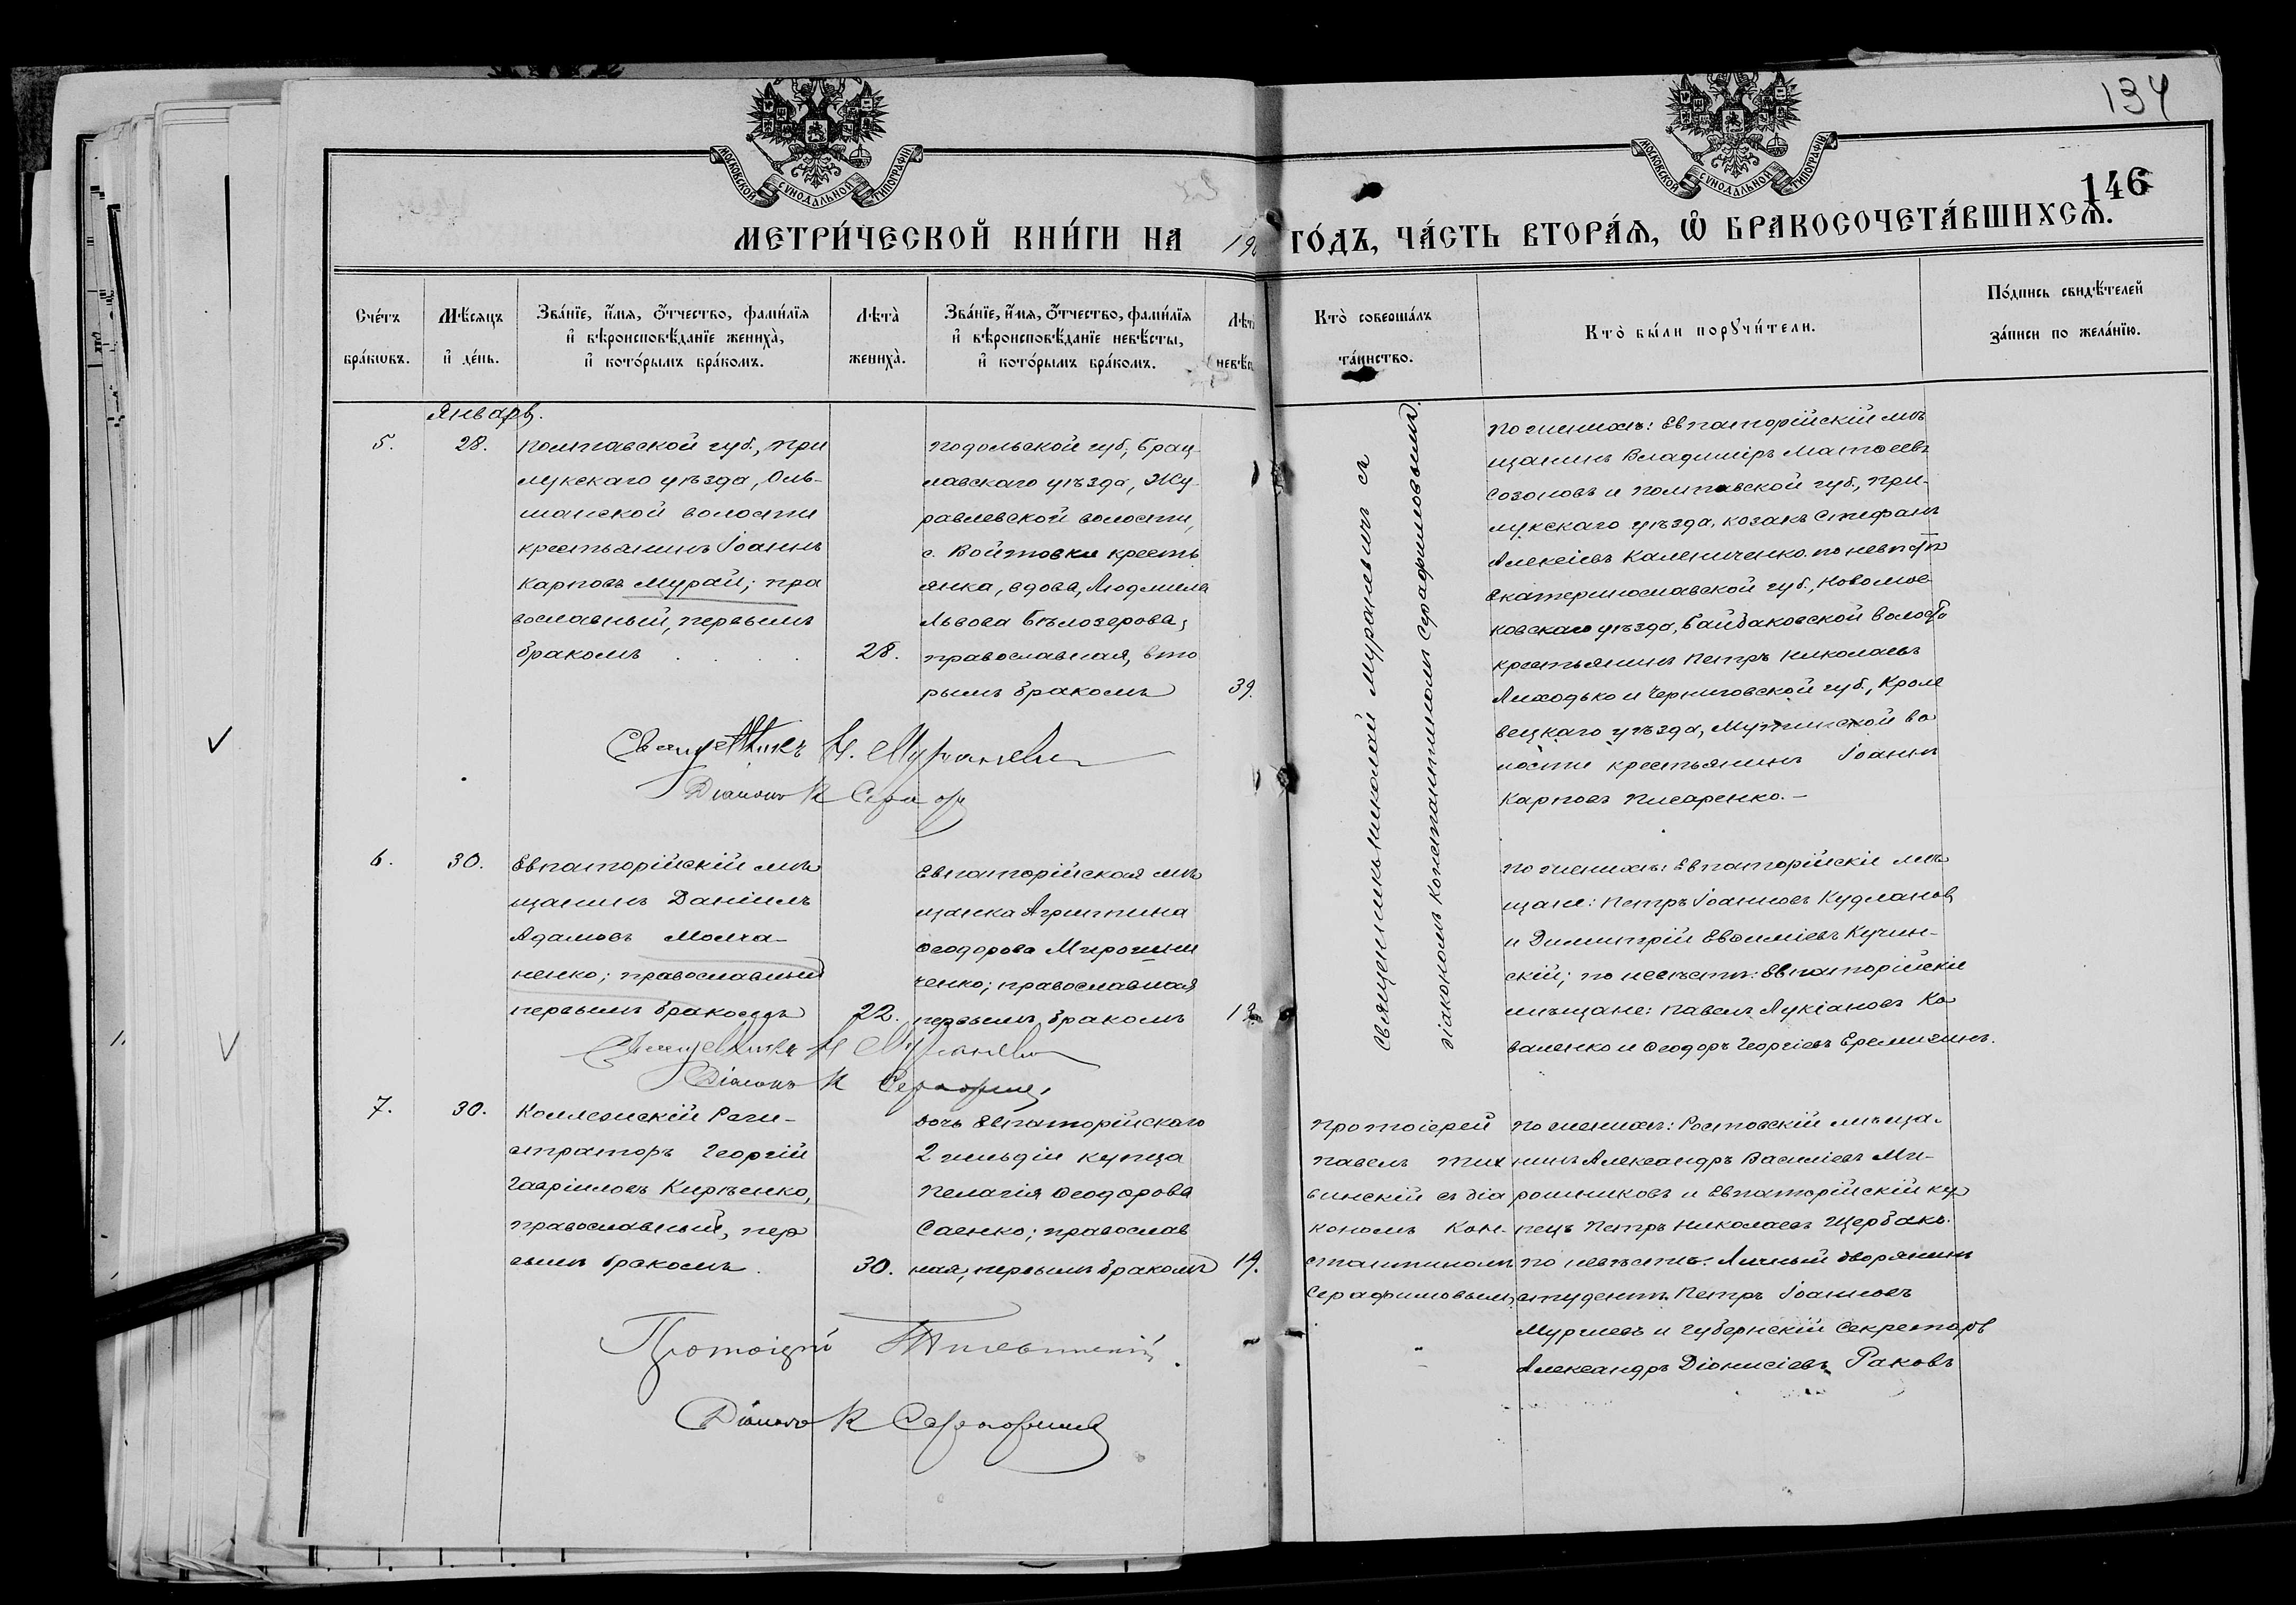 134
146
МОСКОВСКОЙ СѴНОДАЛЬНОЙ ТИПОГРАФІИ
МОСКОВСКОЙ СѴНОДАЛЬНОЙ ТИПОГРАФІИ
МЕТРИ́ЧЕСКОЙ КНИ́ГИ НА 19 ГО́ДЪ, ЧА́СТЬ ВТОРА́Ѧ, Ѡ҆ БРАКОСОЧЕТА́ВШИХСѦ.
Сче́тъ бра́кѡвъ.
Мѣ́сяцъ и҆ де́нь.
Зва́нїе, и҆́мѧ, ѻ҆́тчество, фами́лїѧ
и҆ вѣроисповѣ́данїе женихà,
и҆ кото́рымъ бра́комъ.
Лѣтà женихà.
Зва́нїе, и҆́мѧ, ѻ҆́тчество, фами́лїѧ
и҆ вѣроисповѣ́данїе невѣ́сты,
и҆ кото́рымъ бра́комъ.
Лѣт невѣс
Ктò соверша́лъ
та́инство.
Ктò бы́ли порꙋчи́тели.
По́дпись свидѣ́телей
за́писи по жела́нїю.
Январь.
5.
28.
Полтавской губ., При
лукскаго уѣзда, Оль-
шанской волости
крестьянинъ Іоаннъ
Карповъ Мурай; пра
вославный, первымъ
бракомъ . . . .
28.
Подольской губ., Брац-
лавскаго уѣзда, Жу-
равлевской волости,
с. Войтовки кресть
янка, вдова, Людмила
Львова Бѣлозерова,
православная, вто
рымъ бракомъ
39.
Священникъ Николай Мураневичъ съ
діакономъ Константиномъ Серафимовымъ.
По женихѣ: Евпаторійскій мѣ
щанинъ Владиміръ Матѳеевъ
Созоновъ и Полтавской губ., При-
лукскаго уѣзда, козакъ Стефанъ
Алексіевъ Калениченко. по невѣстѣ
Екатеринославской губ., Новомос
ковскаго уѣзда, Байбаковской волости
крестьянинъ Петръ Николаевъ
Лиходько и Черниговской губ., Кроле
вецкаго уѣзда, Мутинской во
лости крестьянинъ Іоаннъ
Карповъ Писаренко.—
Священникъ Н. Мураневич
Діаконъ К Сераф
6.
30.
Евпаторійскій мѣ
щанинъ Даніилъ
Адамовъ Молча-
ненко; православный
первымъ бракомъ
22.
Евпаторійская мѣ
щанка Агриппина
Ѳеодорова Мирошни
ченко; православная
первымъ бракомъ
По женихѣ: Евпаторійскіе мѣ
щане: Петръ Іоанновъ Кудлановъ
и Димитрій Евѳиміевъ Кучин-
скій; по невѣстѣ: Евпаторійскіе
мѣщане: Павелъ Лукіановъ Ко
валенко и Ѳеодоръ Георгіевъ Еремизинъ.
Священникъ Н Мураневич
Діаконъ К Серафимов
7.
30.
Коллежскій Реги-
страторъ Георгій
Гавріиловъ Кирѣенко,
православный, пер
вымъ бракомъ .
30.
дочь Евпаторійскаго
2 гильдіи купца
Пелагія Ѳеодорова
Саенко; православ
ная, первымъ бракомъ
19.
Протоіерей
Павелъ Тих
винскій съ діа
кономъ Кон-
стантиномъ
Серафимовымъ
По женихѣ: Ростовскій мѣща-
нинъ Александръ Василіевъ Ми-
рошниковъ и Евпаторійскій ку
пецъ Петръ Николаевъ Щербакъ.
по невѣстѣ: Личный дворянинъ
студентъ Петръ Іоанновъ
Мургиевъ и Губернскій Секретарь
Александръ Діонисіевъ Раковъ
Протоіерей ПТихвинскій.
Діаконъ К Серафимовъ